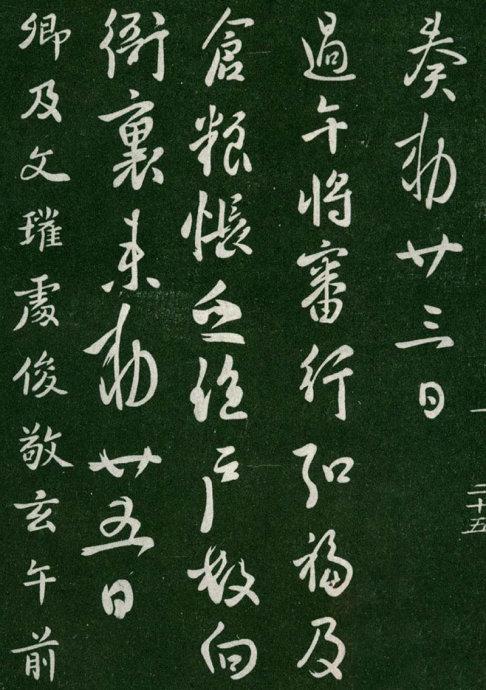 奏勅廿三日
過午将審行弘福及
倉粮帳並総戸数向
衙裏来勅廿五日
卿及文瓘處俊敬玄午前
二十五